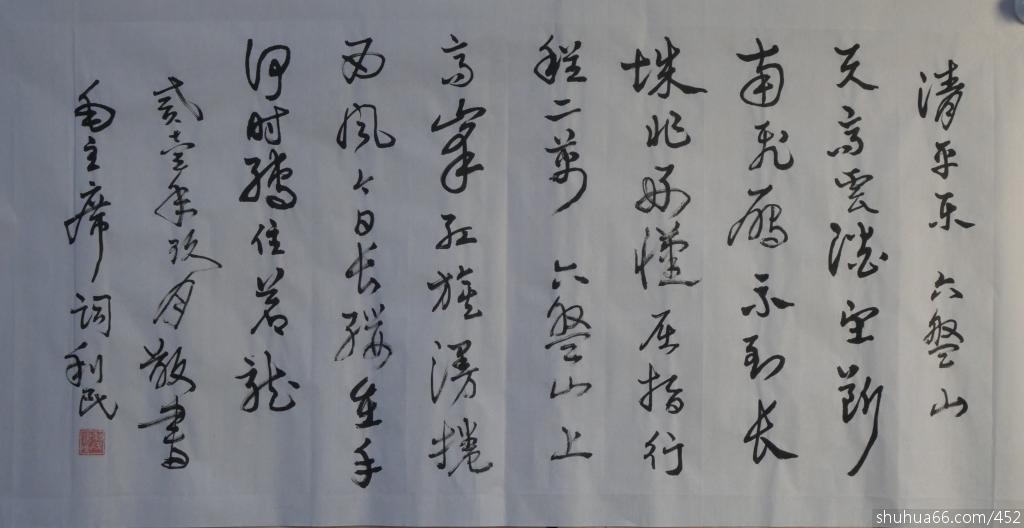 清平乐 六盤山
天高雲淡望斷
南飞鴈不到长
城非好漢屈指行
程二萬 六盤山上
高峯红旗漫捲
西風今日长缨在手
何时缚住蒼龙
贰壹年玖月敬書
毛主席词利民
shuhua66.com/452